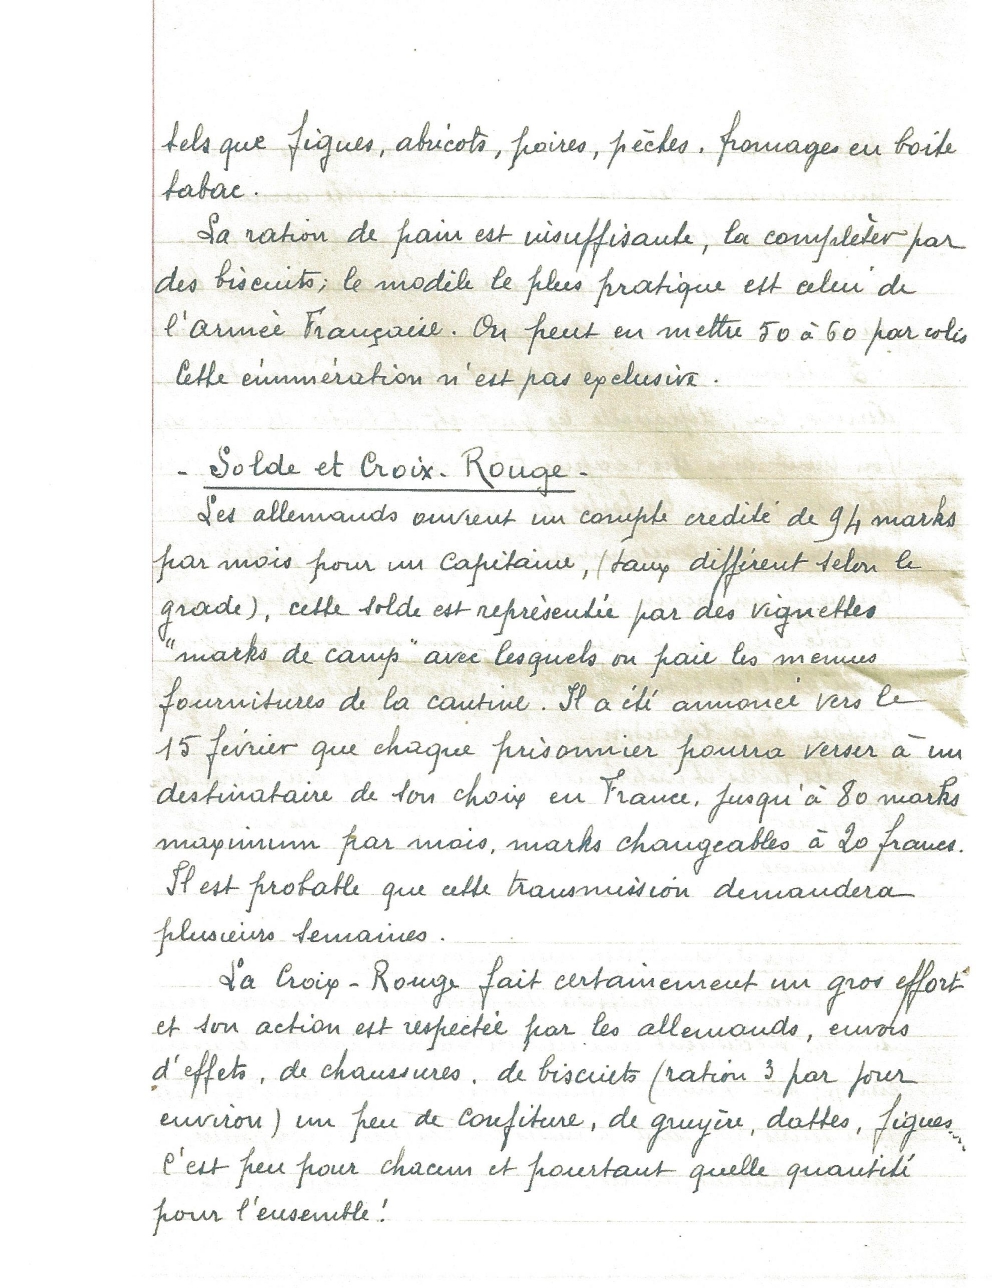 tels que figues, abricots, poires, pêches. fromages en boite
tabac.
La ration de pain est insuffisante, la complèter par
des biscuits; le modèle le plus pratique est celui de
l'armèe Française. On peut en mettre 50 à 60 par colis
Cette énumération n'est pas exclusive.
- Solde et Croix-Rouge -
Les allemands ouvrent un compte credité de 94 marks
par mois pour un Capitaine, (taux différent selon le
grade), cette solde est représentée par des vignettes
"marks de camp" avec lesquels on paie les menues
fournitures de la cantine. Il a été annoncé vers le
15 février que chaque prisonnier pourra verser à un
destinataire de son choix en France, jusqu'à 80 marks
maximum par mois, marks changeables à 20 francs.
Il est probable que cette transmission demandera
plusieurs semaines.
La Croix-Rouge fait certainement un gros effort
et son action est respectée par les allemands, envois
d'effets, de chaussures, de biscuits (ration 3 par jour
environ) un peu de confiture, de gruyère, dattes, figues....
C'est peu pour chacun et pourtant quelle quantité
pour l'ensemble!